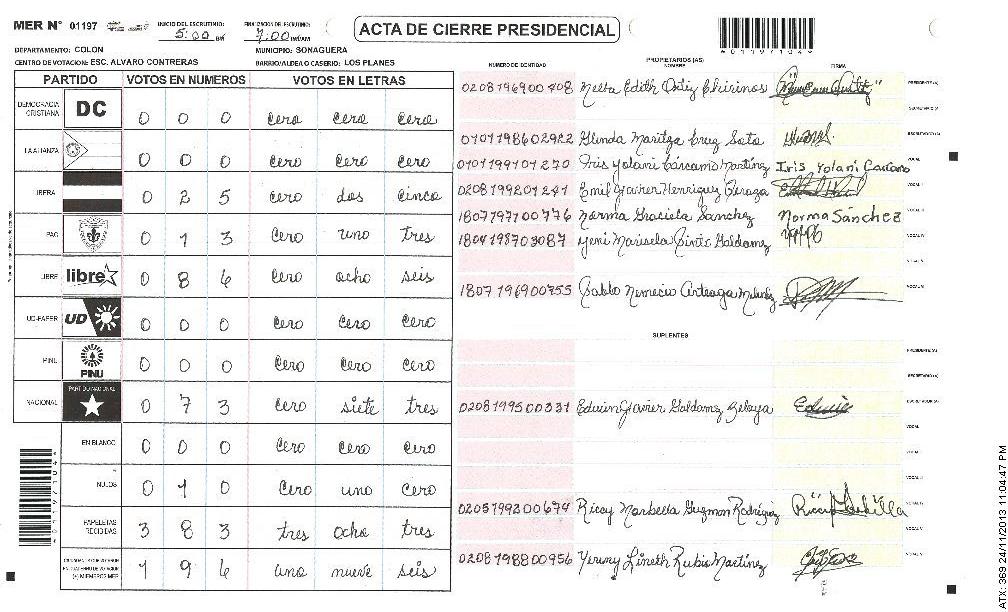 MER N° 01197 INICIO DEL ESCRUTINIO: 5:00 FINALIZACION DEL ESCRUTINIO: 7:00 AM/PM
ACTA DE CIERRE PRESIDENCIAL
DEPARTAMENTO: COLON MUNICIPIO: SONAGUERA
CENTRO DE VOTACION: ESC. ALVARO CONTRERAS BARRIO/ALDEA O CASERIO: LOS PLANES
PARTIDO VOTOS EN NUMEROS VOTOS EN LETRAS
DEMOCRACIA CRISTIANA DC 0 0 0 cero cero cero
LA ALIANZA 0 0 0 cero cero cero
LIBERAL 0 2 5 cero dos cinco
PAC 0 1 3 cero uno tres
LIBRE libre 0 8 6 cero ocho seis
UD-FAPER UD 0 0 0 cero cero cero
PINU PINU 0 0 0 cero cero cero
NACIONAL PARTIDO NACIONAL 0 7 3 cero siete tres
EN BLANCO 0 0 0 cero cero cero
NULOS 0 1 0 cero uno cero
PAPELETAS RECIBIDAS 3 8 3 tres ocho tres
(+) MIEMBROS MER 1 9 6 uno nueve seis
NUMERO DE IDENTIDAD PROPIETARIOS (AS) NOMBRE FIRMA
0208196900408 Edith Ortiz Chirinos PRESIDENTE(A)
SECRETARIO(A)
0101198602922 Glenda Maritza Cruz Soto
0101199101270 Iris Yolani Cárcamo Martínez Iris Yolani Carcamo
0208199201241 Emil Javier Henriquez Peraza
1807197100776 Norma Graciela Sanchez Norma Sánchez
1804198703087 Yeni Marisela Galdamez
1807196900755 Pablo Nemecio Arteaga
SUPLENTES
PRESIDENTE(A)
SECRETARIO(A)
0208199500331 Edwin Javier Galdamez Zelaya
0205199200674 Riccy Marbella Guzman Rodríguez
0208198800956 Yenny Lineth Rubio Martínez
ATX: 369 24/11/2013 11:04:47 PM